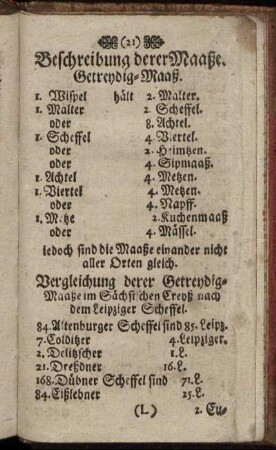 (21)
Beschreibung derer Maaße.
Getreydig-Maaß.
1. Wispel hält 2. Malter.
1. Malter 2. Scheffel.
oder 8. Achtel.
1. Scheffel 4. Viertel.
oder 2. Heimtzen.
oder 4. Sipmaaß.
1. Achtel 4. Metzen.
1. Viertel 4. Metzen.
oder 4. Napff.
1. Metze 2. Kuchenmaaß
oder 4. Mässel.
iedoch sind die Maaße einander nicht
aller Orten gleich.
Vergleichung derer Getreydig-
Maaße im Sächsischen Creyß nach
dem Leipziger Scheffel.
84. Altenburger Scheffel sind 85. Leipz.
7. Colditzer 4. Leipziger.
2. Delitzscher 1. L.
21. Dreßdner 16. L.
168. Dübner Scheffel sind 71. L.
84. Eißlebner 25. L.
(L) 2. Eu-